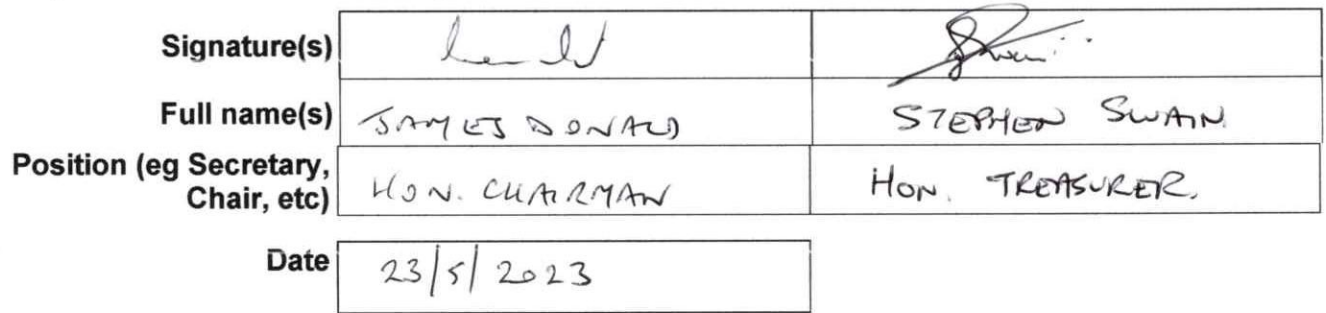 Signature(s)
Full name(s) JAMES DONALD STEPHEN SWAIN
Position (eg Secretary, Chair, etc) HON. CHAIRMAN HON. TREASURER.
Date 23/5/2023